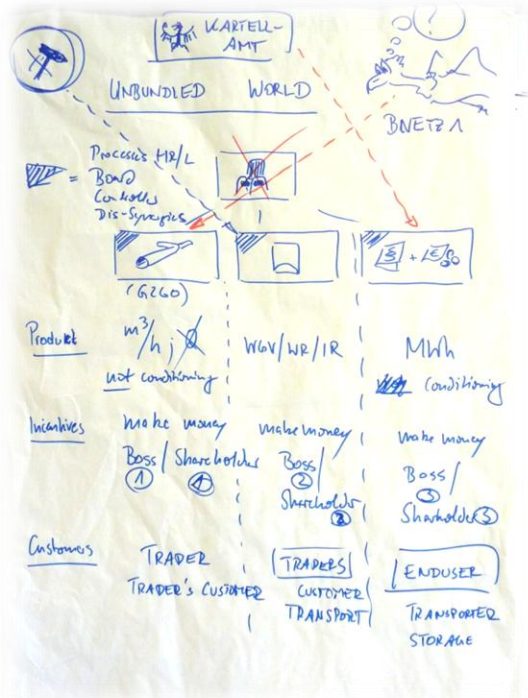 KARTELL-
AMT
?
UNBUNDLED WORLD
BNETZA
= Processes HR/L
Board
Controller
Dis-Synergies
(G2GO)
§ + €
Produkt
m³/h ;
WGV/WR/IR
MWh
not conditioning
conditioning
Incentives
make money
make money
make money
Boss / Shareholder
① ①
Boss /
②
Shareholder ②
Boss /
③
Shareholder ③
Customers
TRADER
TRADER'S CUSTOMER
TRADERS
CUSTOMER
TRANSPORT
ENDUSER
TRANSPORTER
STORAGE